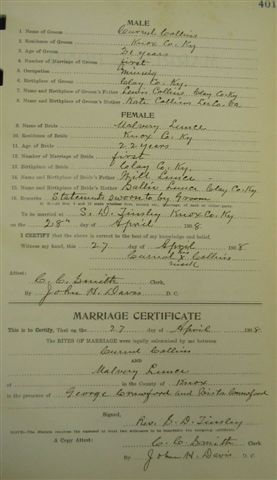 401
MALE
1. Name of Groom Currud Collins
2. Residence of Groom Knox Co. Ky.
3. Age of Groom 21 years
4. Number of Marriage of Groom first
5. Occupation Mining
6. Birthplace of Groom Clay Co. Ky.
7. Name and Birthplace of Groom's Father Lewis Collins, Clay Co. Ky
8. Name and Birthplace of Groom's Mother Kate Collins Lee Co. Va.
FEMALE
9. Name of Bride Malvery Lunce
10. Residence of Bride Knox Co. Ky
11. Age of Bride 22 years
12. Number of Marriage of Bride first
13. Birthplace of Bride Clay Co. Ky.
14. Name and Birthplace of Bride's Father Will Lunce
15. Name and Birthplace of Bride's Mother Sallie Lunce Clay Co. Ky
16. Remarks Statements sworn to by Groom
To be married at S. D. Tinsley Knox Co. Ky
on the 28th day of April 1918.
I CERTIFY that the above is correct to the best of my knowledge and belief.
Witness my hand, this 27 day of April 1918
his
Currud X Collins
mark
Attest:
C. C. Smith Clerk,
By John H. Davis D. C.
MARRIAGE CERTIFICATE
This is to Certify, That on the 27 day of April 1918
The RITES OF MARRIAGE were legally solemnized by me between
Currud Collins
AND
Malvery Lunce
at in the County of Knox
in the presence of George Crawford and Crawford
Signed,
Rev. S. D. Tinsley
A Copy Attest:
C. C. Smith Clerk
By John H. Davis D.C.